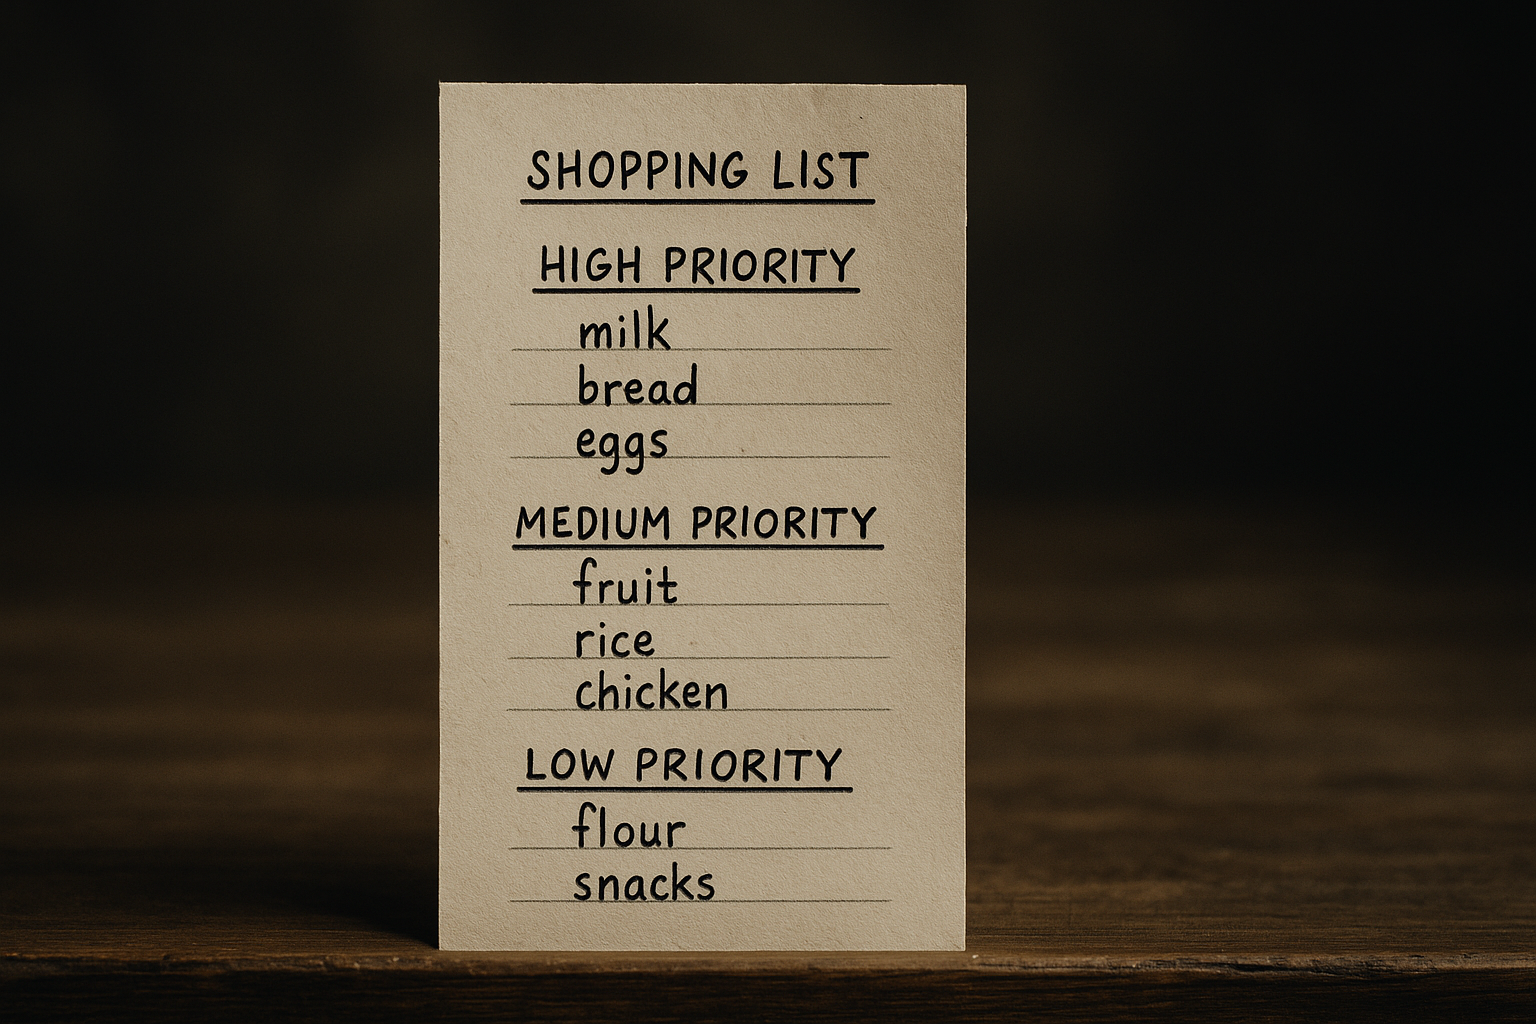 SHOPPING LIST
HIGH PRIORITY
milk
bread
eggs
MEDIUM PRIORITY
fruit
rice
chicken
LOW PRIORITY
flour
snacks